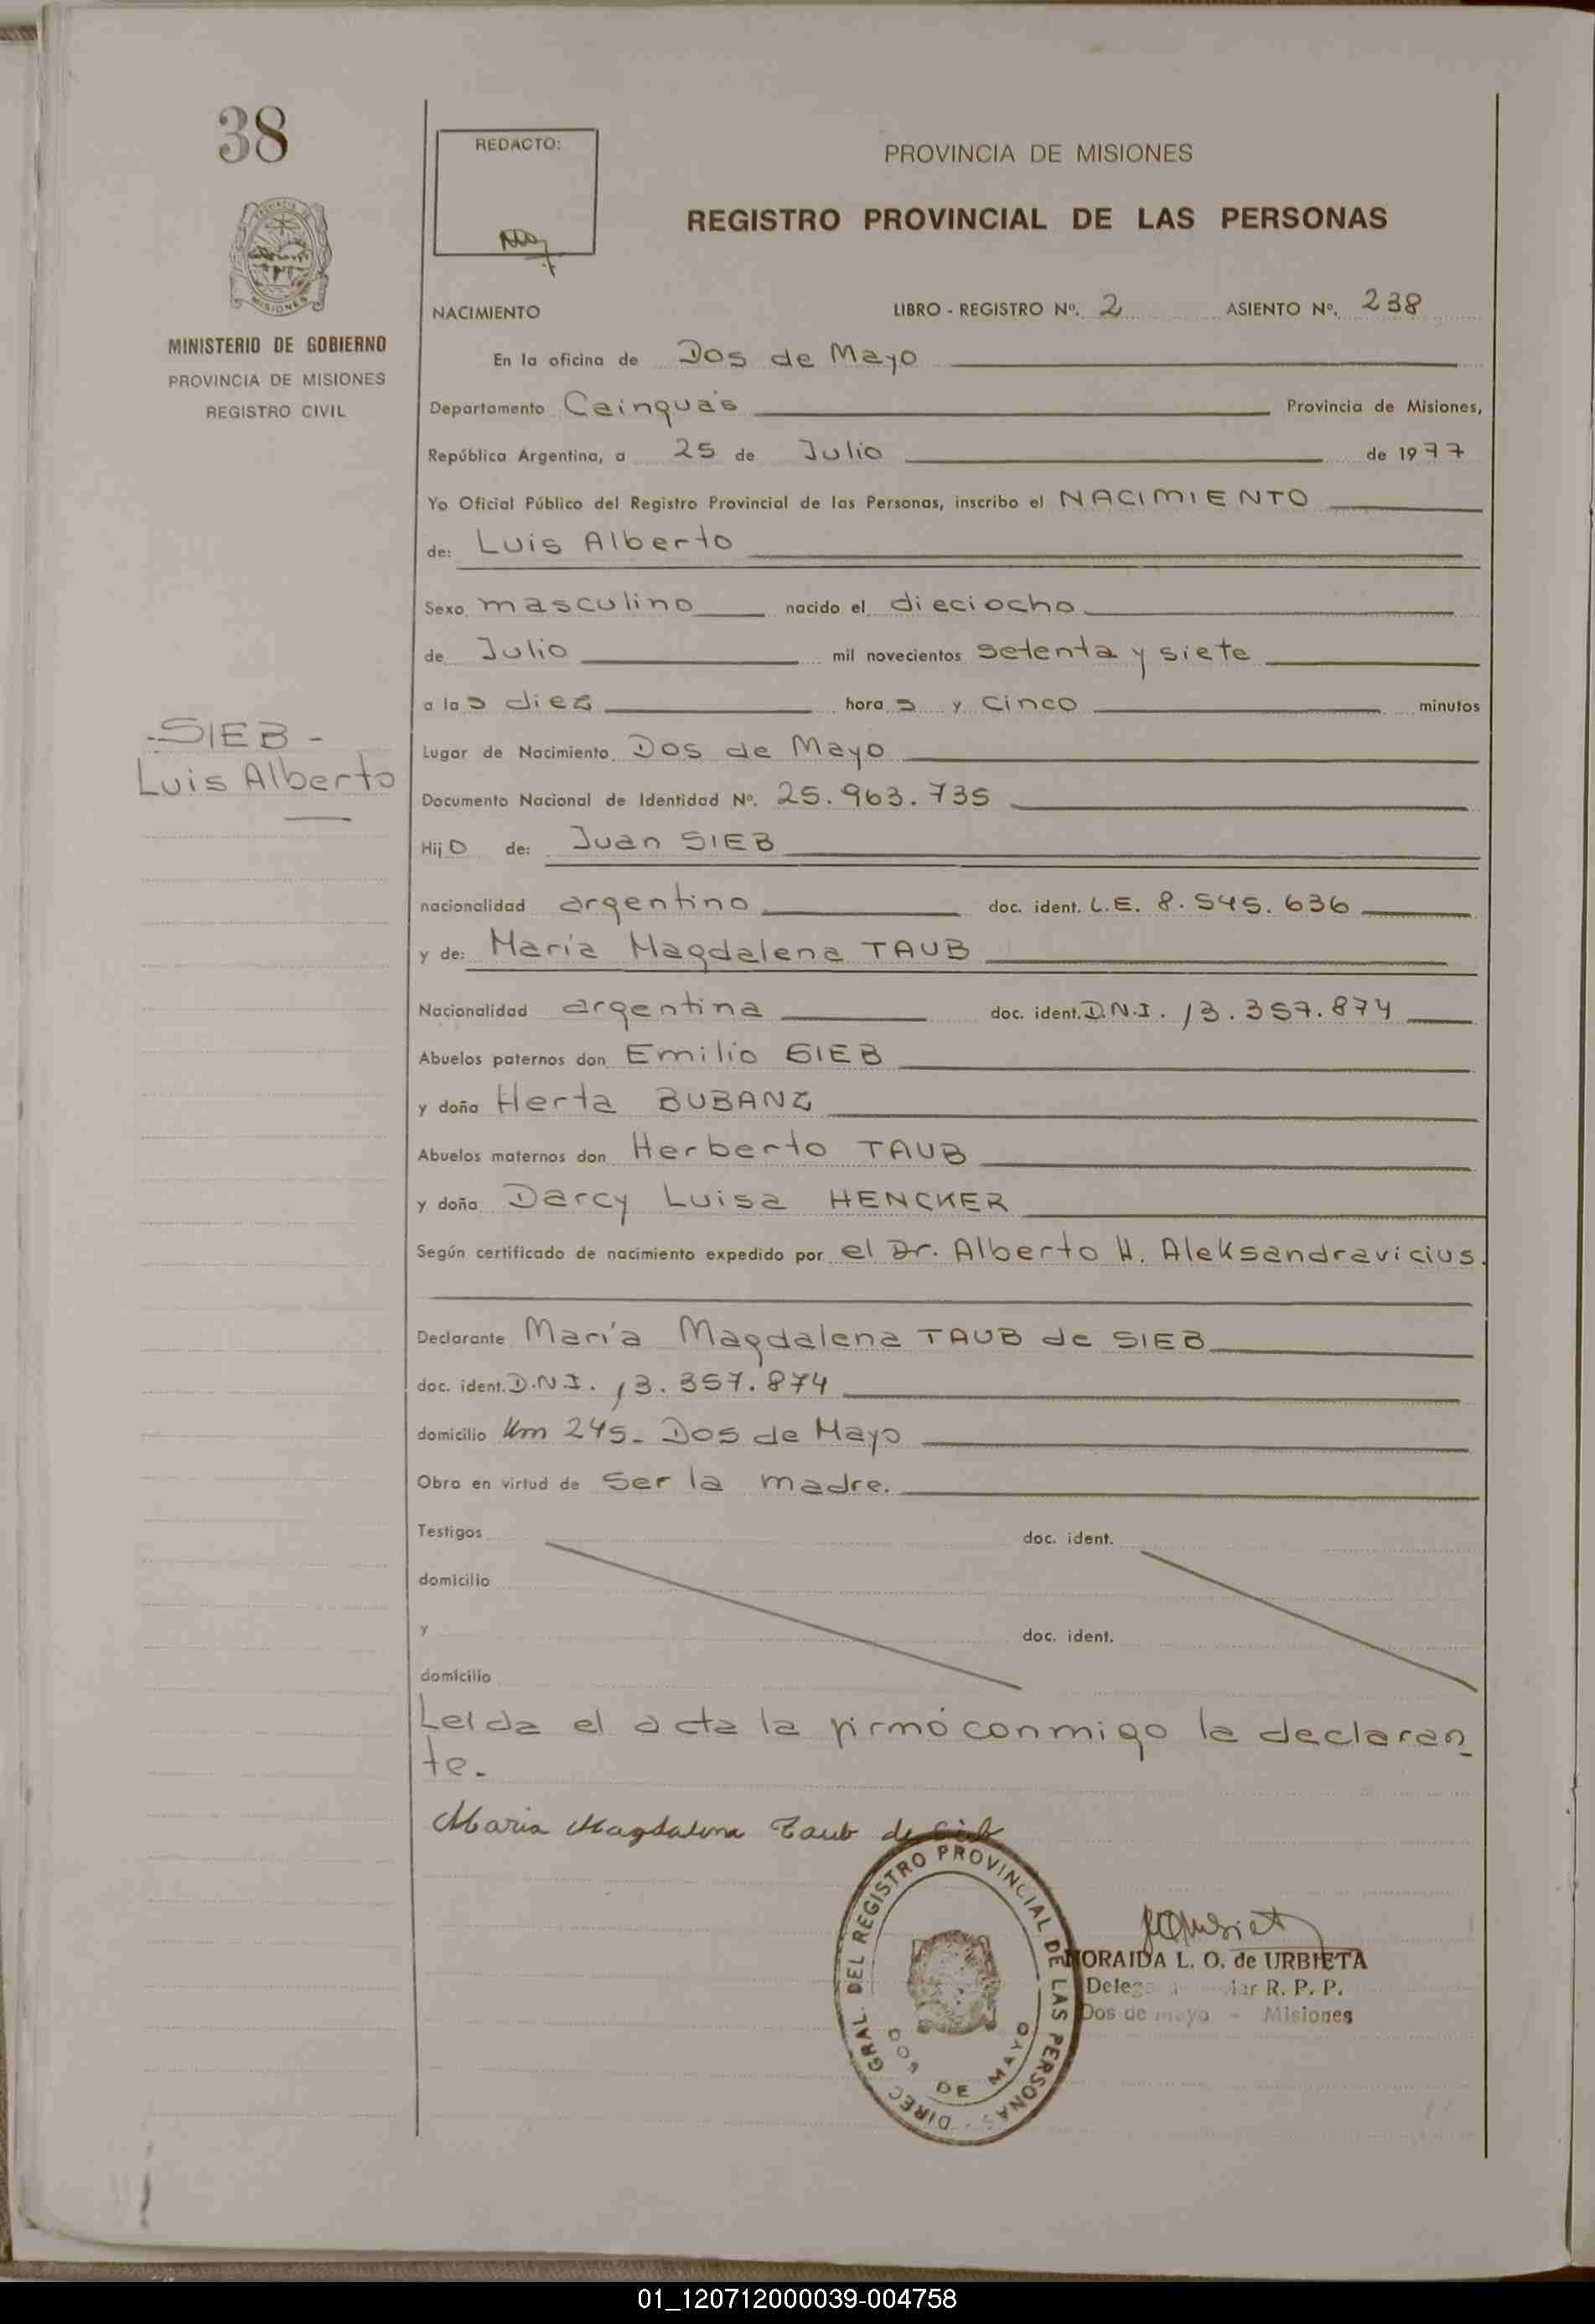 38
REDACTO:
PROVINCIA DE MISIONES
REGISTRO PROVINCIAL DE LAS PERSONAS
MISIONES
MINISTERIO DE GOBIERNO
PROVINCIA DE MISIONES
REGISTRO CIVIL
NACIMIENTO LIBRO - REGISTRO Nº. 2 ASIENTO Nº. 238
En la oficina de Dos de Mayo
Departamento Cainguás Provincia de Misiones,
República Argentina, a 25 de Julio de 1977
Yo Oficial Público del Registro Provincial de las Personas, inscribo el NACIMIENTO
de: Luis Alberto
Sexo masculino nacido el dieciocho
de Julio mil novecientos setenta y siete
a las diez horas y cinco minutos
- SIEB -
Luis Alberto
Lugar de Nacimiento Dos de Mayo
Documento Nacional de Identidad Nº. 25.963.735
Hijo de: Juan SIEB
nacionalidad argentino doc. ident. L.E. 8.545.636
y de: María Magdalena TAUB
Nacionalidad argentina doc. ident. D.N.I. 13.357.874
Abuelos paternos don Emilio SIEB
y doña Herta BUBANZ
Abuelos maternos don Herberto TAUB
y doña Darcy Luisa HENCKER
Según certificado de nacimiento expedido por el Dr. Alberto H. Aleksandravicius.
Declarante María Magdalena TAUB de SIEB
doc. ident. D.N.I. 13.357.874
domicilio Km 245- Dos de Mayo
Obra en virtud de ser la madre.
Testigos doc. ident.
domicilio
y doc. ident.
domicilio
Leida el acta la firmó conmigo la declaran-
te.
Maria Magdalena Taub de Sieb
DIREC. GRAL. DEL REGISTRO PROVINCIAL DE LAS PERSONAS
DOS DE MAYO
NORAIDA L. O. de URBIETA
R. P. P.
Dos de mayo - Misiones
01_120712000039-004758